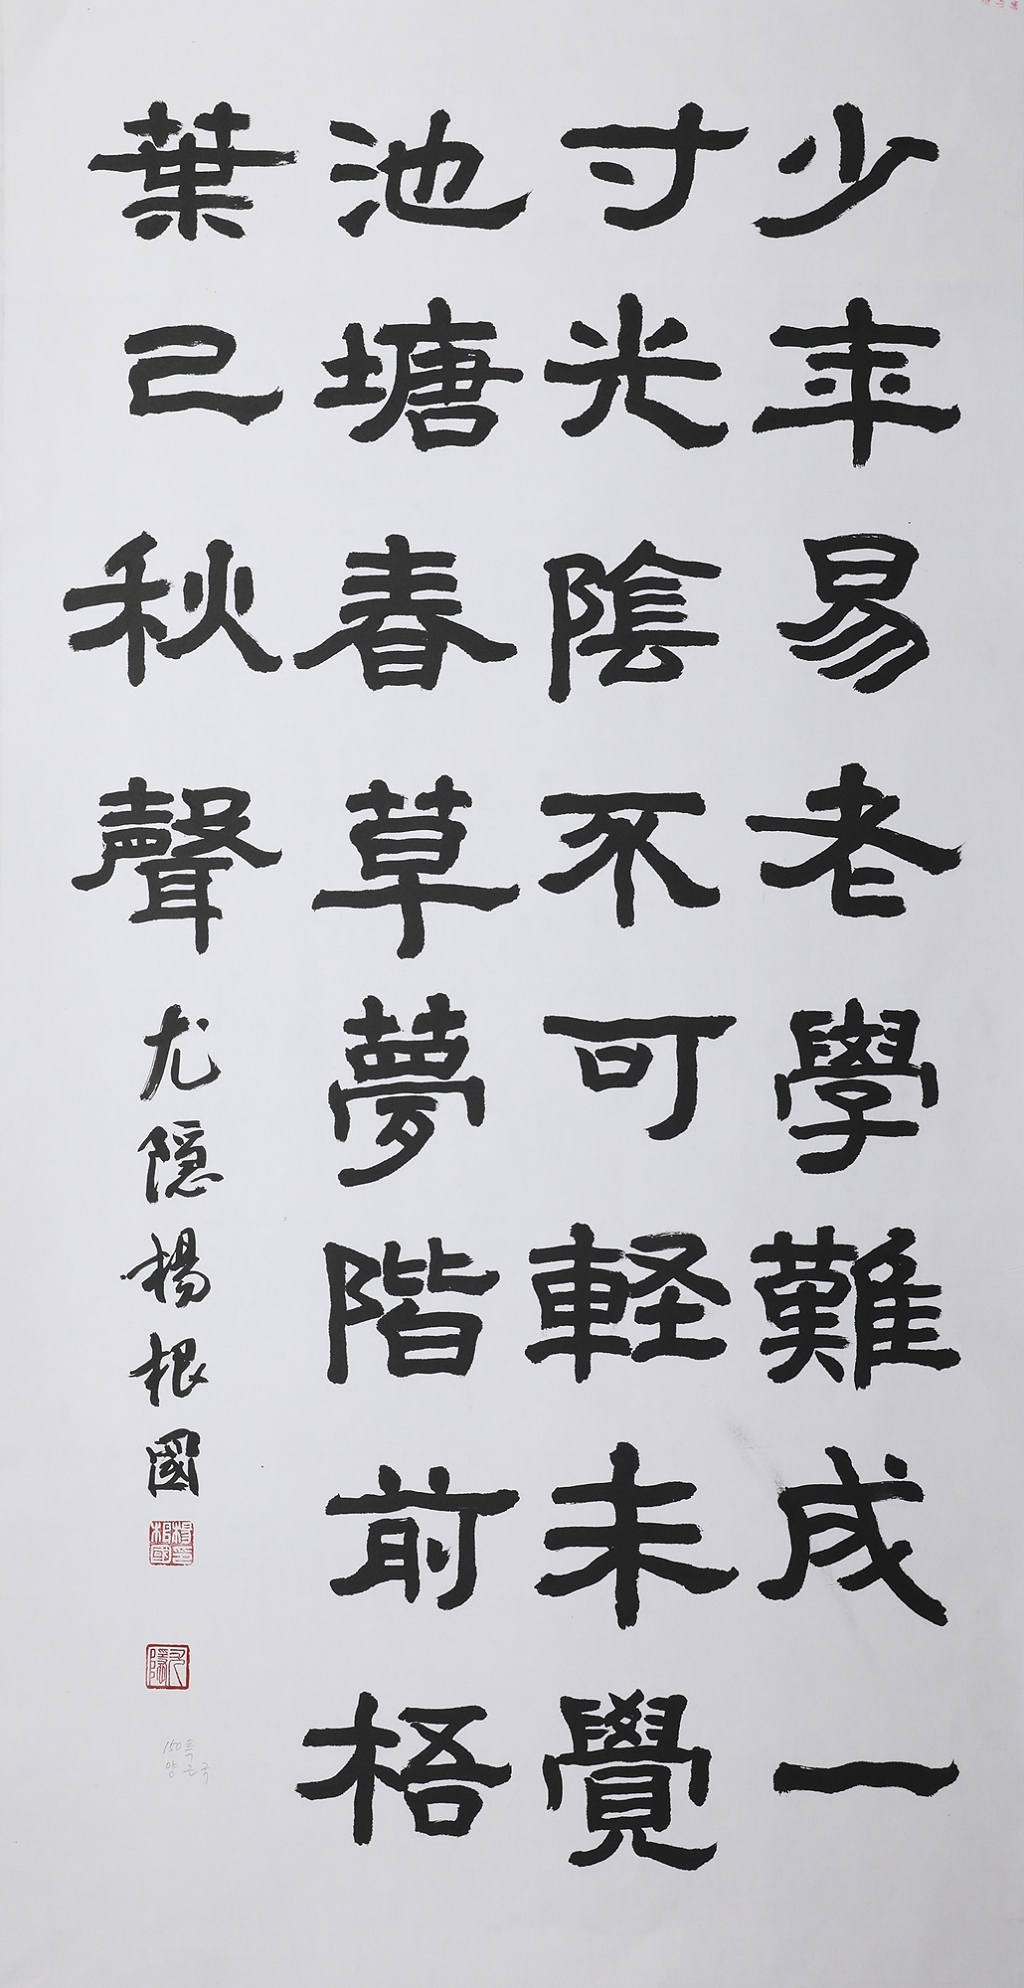 少年易老學難成一
寸光陰不可軽未覺
池塘春草夢階前梧
葉已秋聲 尤隠楊根國
楊根國印
150폭
양근국